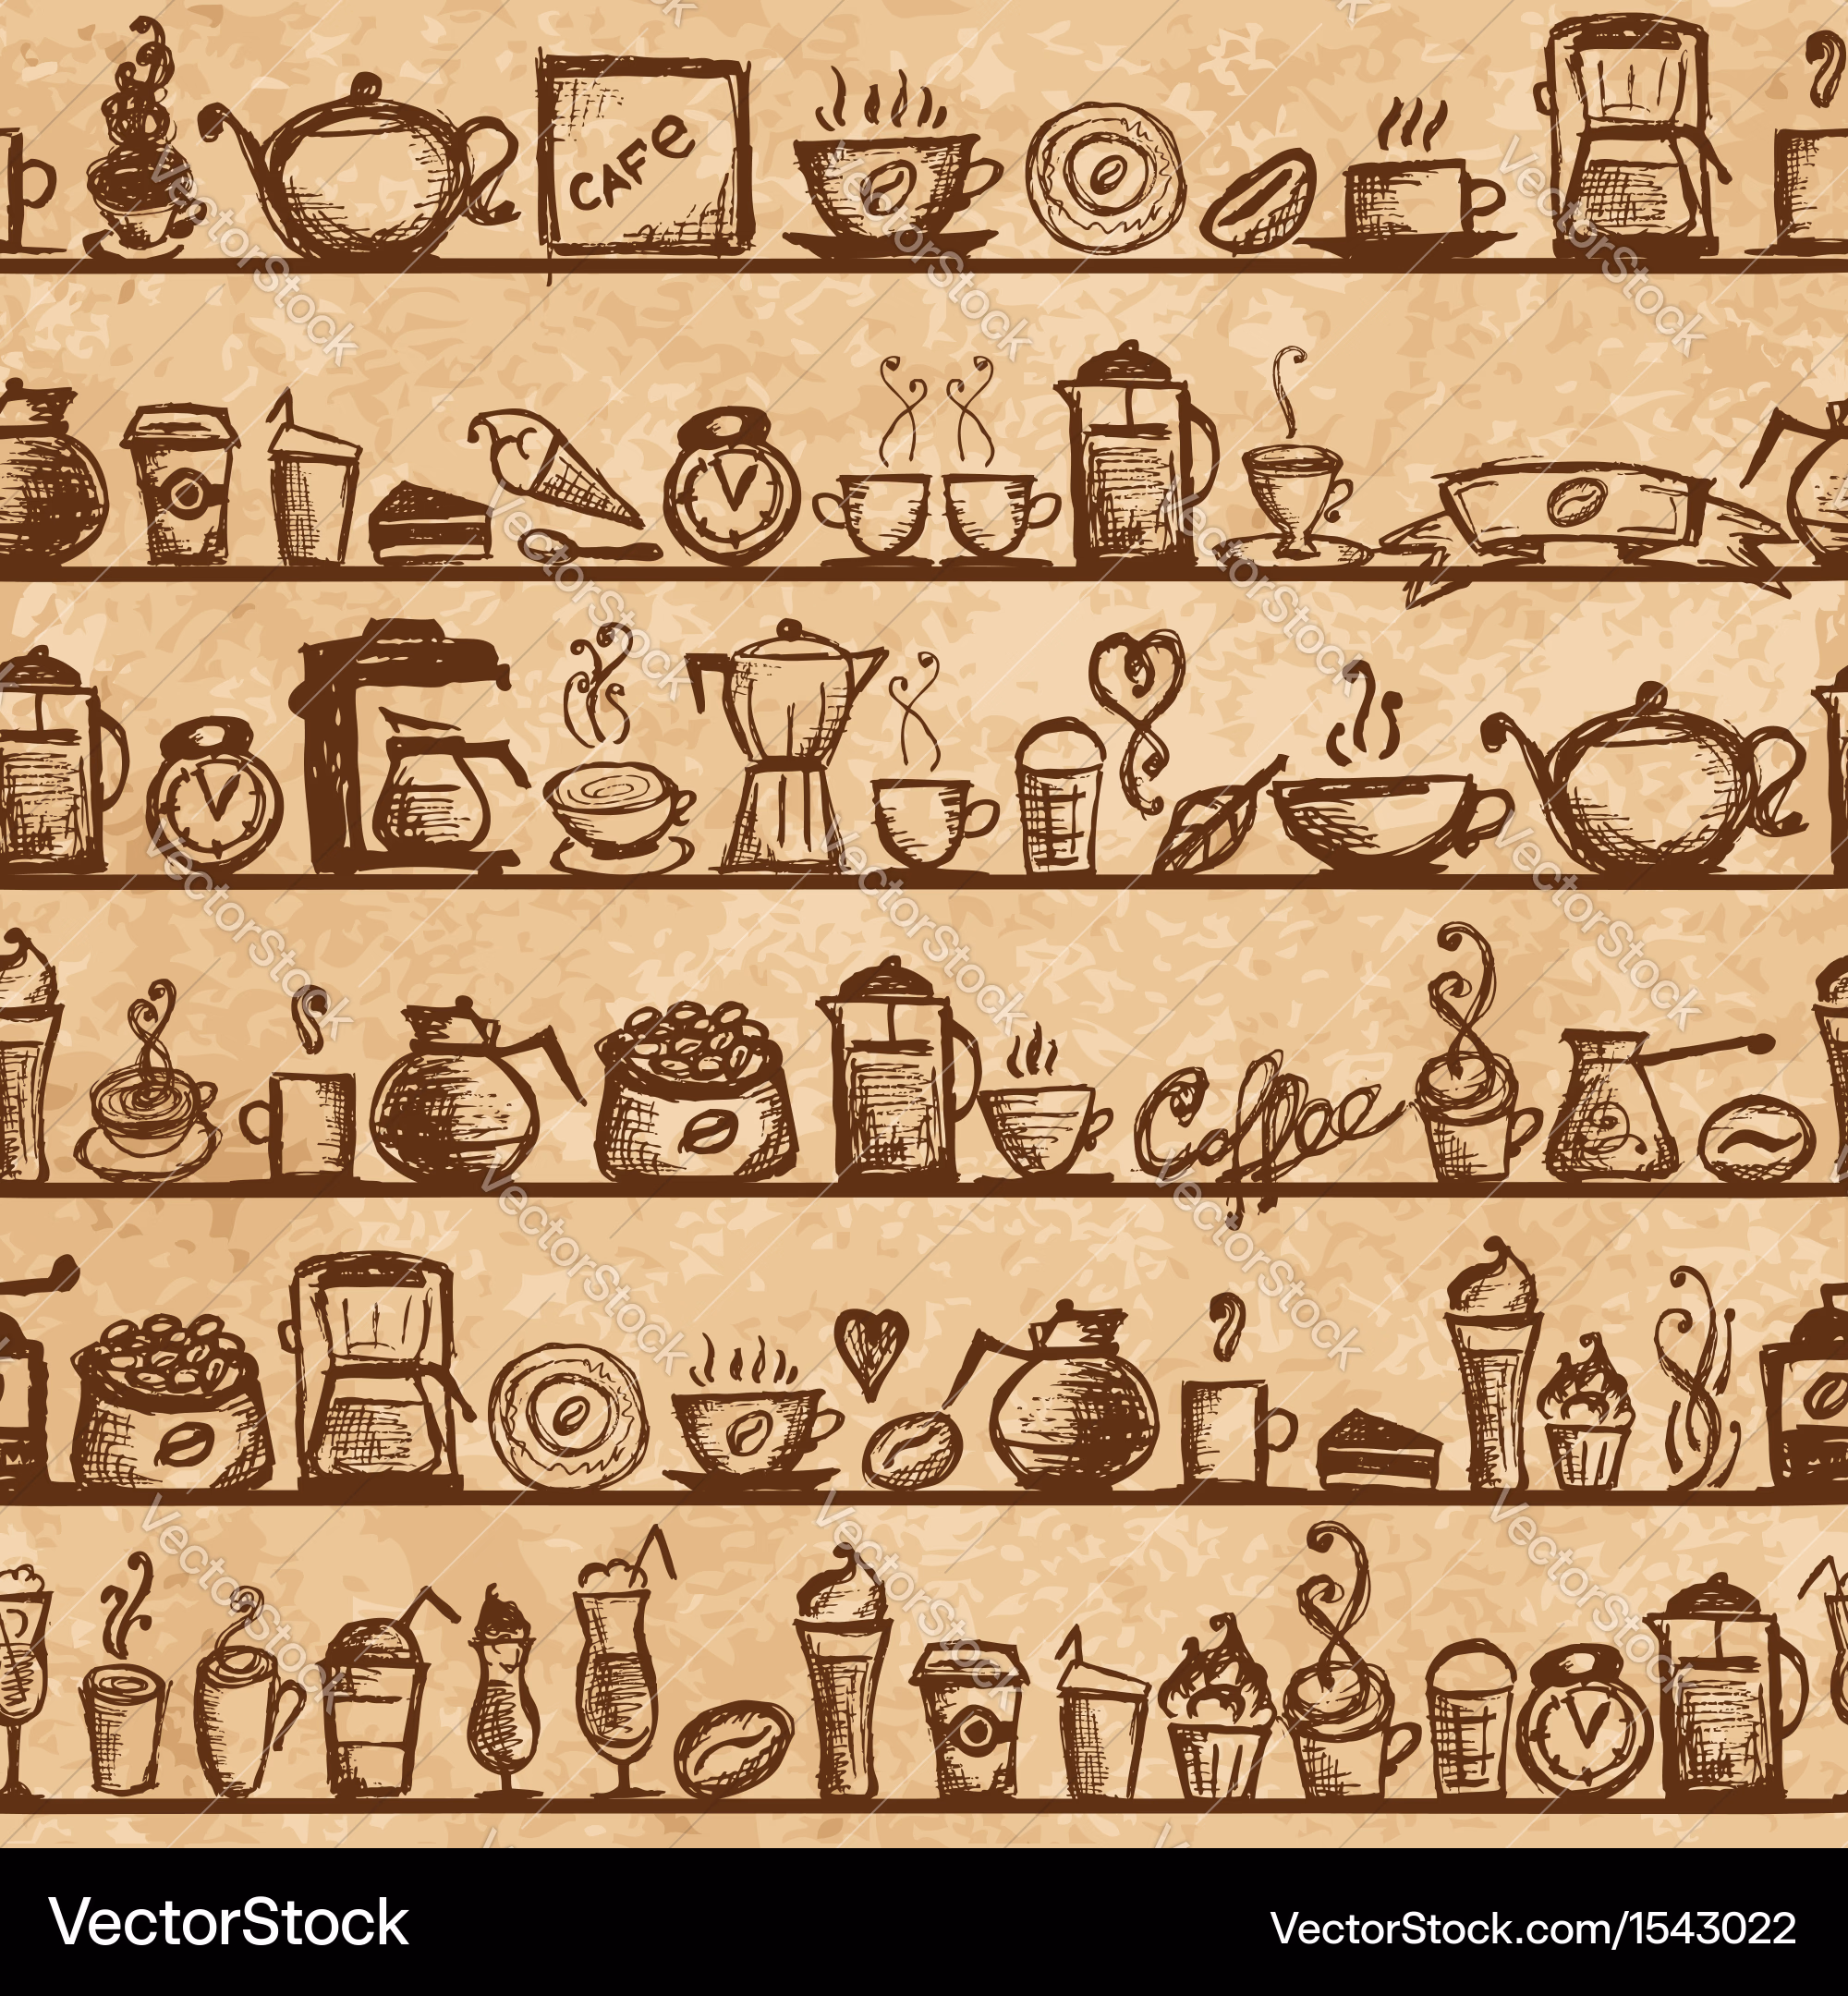 CAFe
Coffee
VectorStock
VectorStock.com/1543022